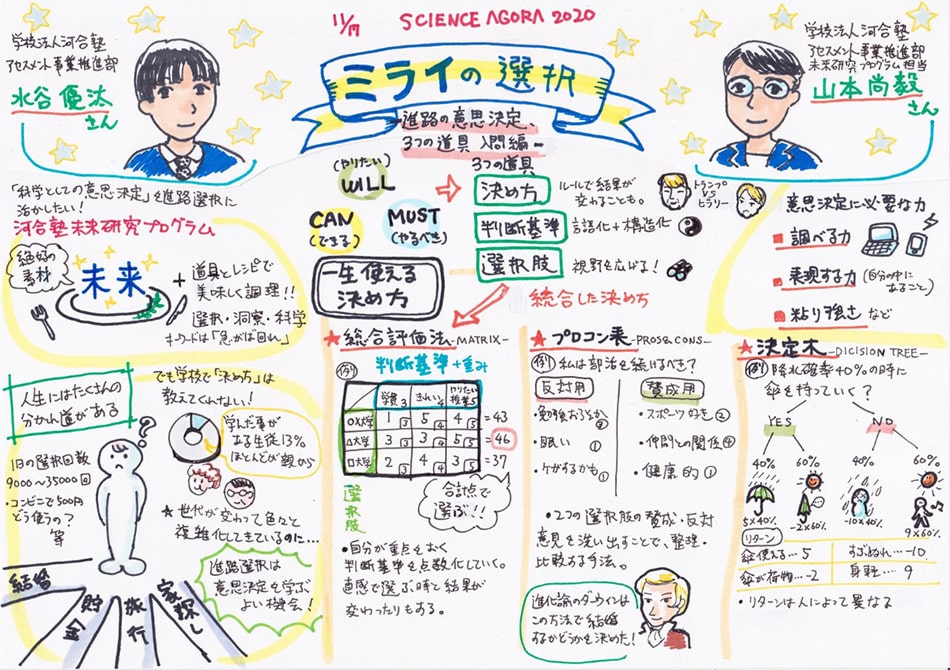 11/17 SCIENCE AGORA 2020
学校法人河合塾
アセスメント事業推進部
水谷優汰
さん
ミライの選択
-進路の意思決定、
3つの道具 入門編-
学校法人河合塾
アセスメント事業推進部
未来研究プログラム担当
山本尚毅
さん
「科学としての意思決定」を進路選択に
活かしたい!
河合塾未来研究プログラム
絶好の
素材
未来
+ 道具とレシピで
美味しく調理!!
選択・洞察・科学
キーワードは「急がば回れ」
(やりたい)
WILL
CAN
(できる)
MUST
(やるべき)
一生使える
決め方
3つの道具
決め方
ルールで結果が
変わることも。
トランプ
VS
ヒラリー
判断基準
言語化+構造化
選択肢
視野を広げる!
統合した決め方
意思決定に必要な力
調べる力
表現する力(自分の中に
あること)
粘り強さ など
人生にはたくさんの
分かれ道がある
1日の選択回数
9000〜35000回
・コンビニで500円
どう使うの?
等
でも学校で「決め方」は
教えてくんない!
学んだ事が
ある生徒13%
ほとんどが親から
★世代が変わって色々と
複雑化してきているのに…
進路選択は
意思決定を学ぶ
よい機会!
結婚
貯金
旅行
家探し
★総合評価法-MATRIX-
判断基準+重み
例)
学費 3 きれい 4 やりたい授業 5
〇×大学 1 3 5 4 4 5 =43
△大学 3 3 3 4 5 5 =46
口大学 2 3 4 4 3 5 =37
選択肢
合計点で
選ぶ!!
・自分が重点をおく
判断基準を点数化していく。
直感で選ぶ時と結果が
変わったりもする。
★プロコン表-PROS&CONS-
例)私は部活を続けるべき?
反対用
・勉強おろそか②
・眠い ①
・ケガするかも①
賛成用
・スポーツ好き②
・仲間との関係④
・健康的①
・2つの選択肢の賛成・反対
意見を洗い出すことで、整理・
比較する手法。
進化論のダーウィンは
この方法で結婚
するかどうかを決めた!
★決定木-DICISION TREE-
例)降水確率40%の時に
傘を持っていく?
YES
NO
40% 60% 40% 60%
5×40% -2×60% -10×40% 9×60%
リターン
傘使える…5 ずぶぬれ…-10
傘が荷物…-2 身軽…9
・リターンは人によって異なる